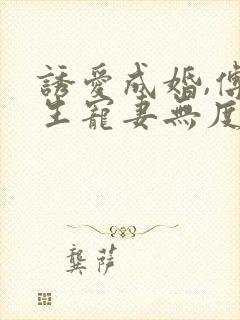 誘愛成婚,傅
生寵妻無度
龔萍